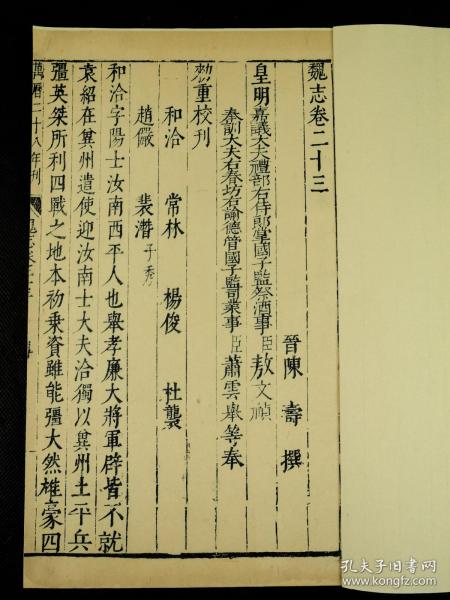 魏志卷二十三
晉陳壽撰
皇明嘉議大夫禮部右侍郎掌國子監祭酒事臣敖文禎
奉訓大夫右春坊右諭德管國子監司業事臣蕭雲舉等奉
勑重校刊
和洽 常林 楊俊 杜襲
趙儼 裴潛子秀
和洽字陽士汝南西平人也舉孝廉大將軍辟皆不就
袁紹在兾州遣使迎汝南士大夫洽獨以兾州土平兵
彊英桀所利四戰之地本初乗資雖能彊大然雄豪四
萬曆二十八年刊
孔夫子旧书网
www.kongfz.com